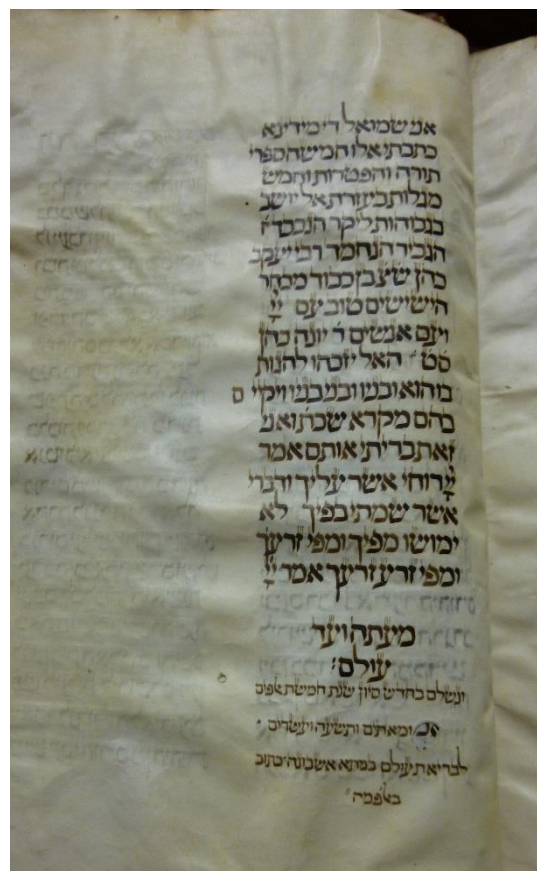 אני שמואל די מידינא
כתבתי אלו חמישה ספרי
תורה והפטרות וחמש
מגלות בעזרת אל יושב
בגבוהות ליקר הנכבד ה
הגביר הנחמד רבי יעקב
כהן ש״צ בן כבוד מבחר
הישישים טוב עם ייָ
ועם אנשים ר׳ יונה כהן
סט׳ האל יזכהו להגות
בו הוא ובניו ובני בניו ויקיים
בהם מקרא שכתו׳ ואני
זאת בריתי אותם אמר
ייָ רוחי אשר עליך ודברי
אשר שמתי בפיך לא
ימושו מפיך ומפי זרעך
ומפי זרע זרעך אמר ייָ
מעתה ועד
עולם׳
ונשלם בחדש סיון שנת חמשת אלפים
ומאתים ותשעה ועשרים
לבריאת עולם במתא אשבונה כתוב